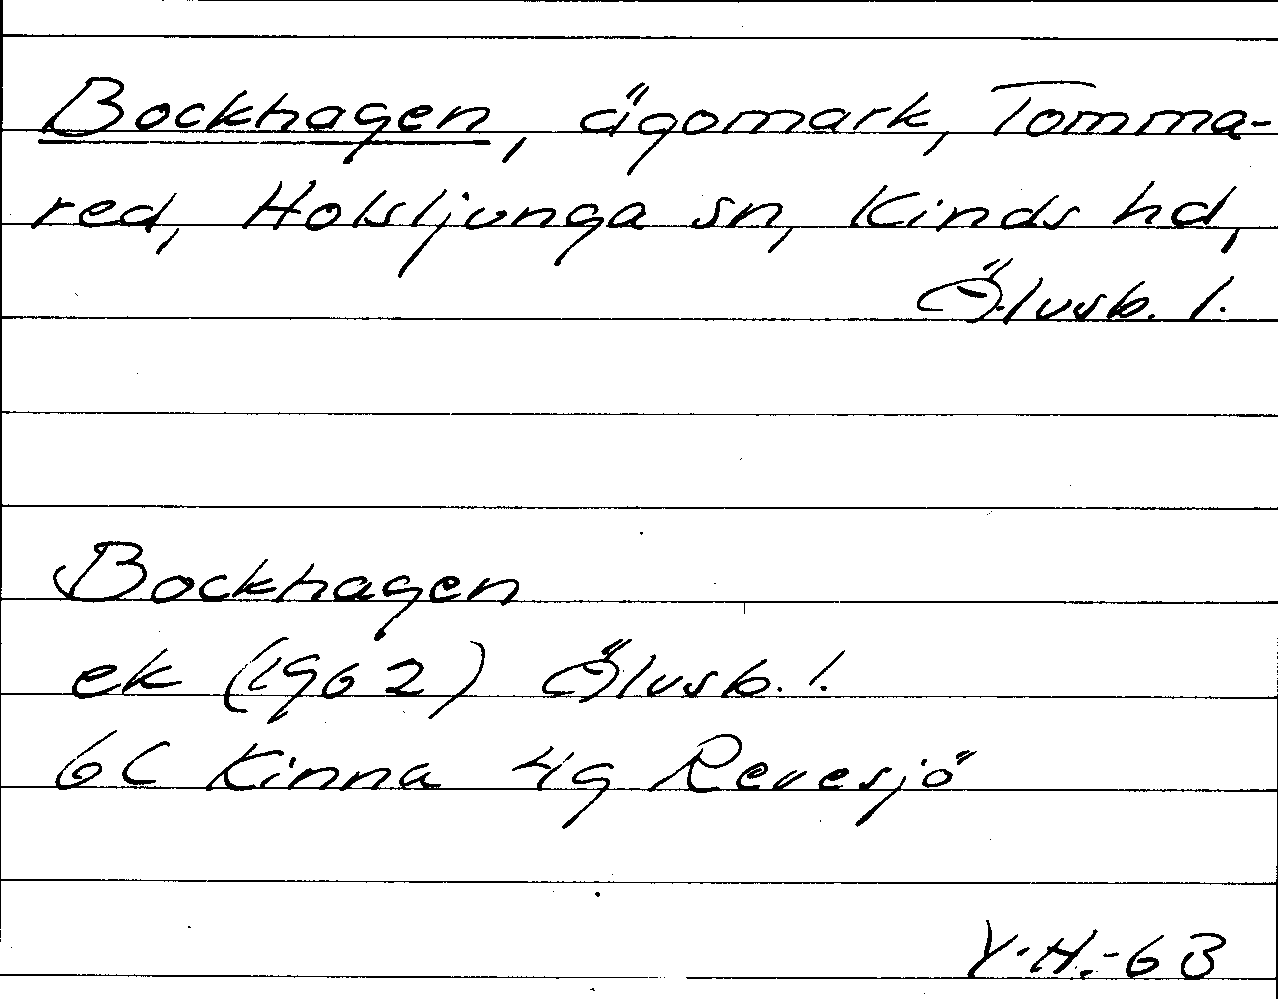 Bockhagen, ägomark, Tomma-
red, Holsljunga sn, Kinds hd,
Älvsb. l.
Bockhagen
ek (1962) Älvsb. l.
6C Kinna 4g Revesjö
Y.H.-63